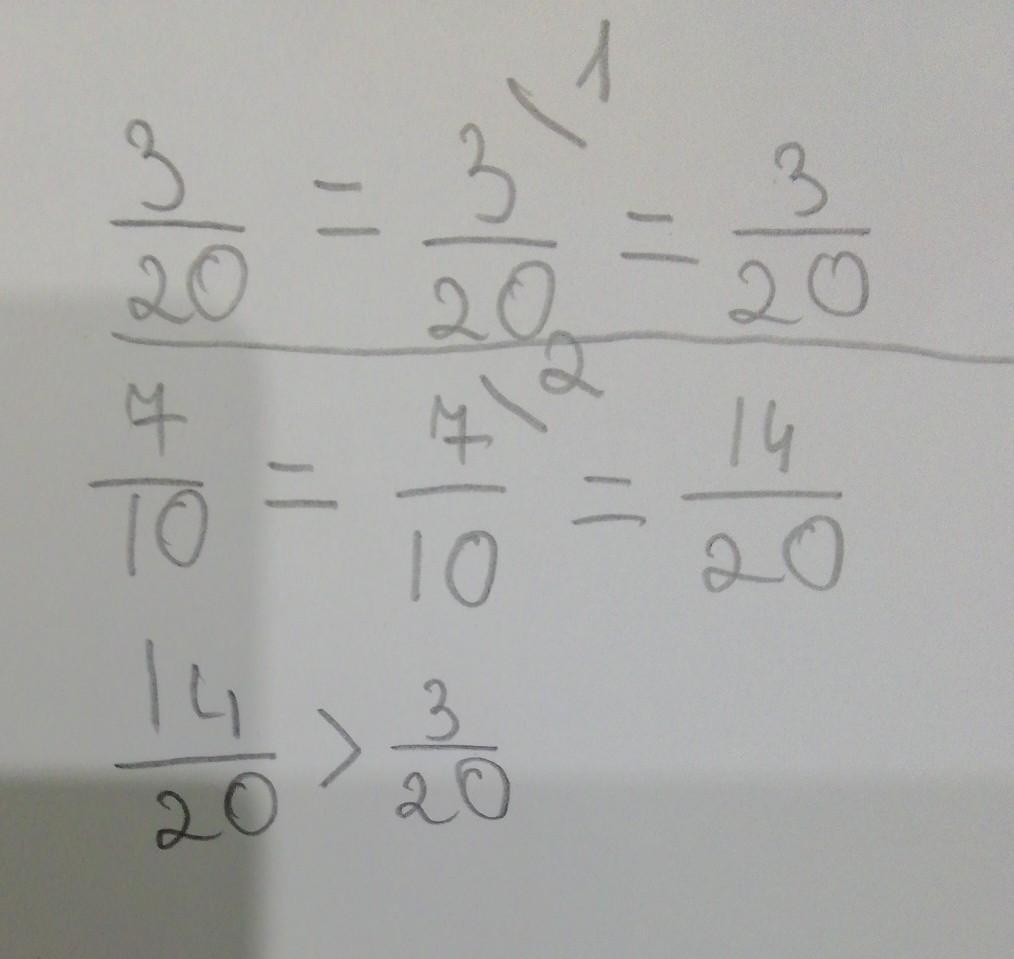 3/20 = 3\1/20 = 3/20
7/10 = 7\2/10 = 14/20
14/20 > 3/20